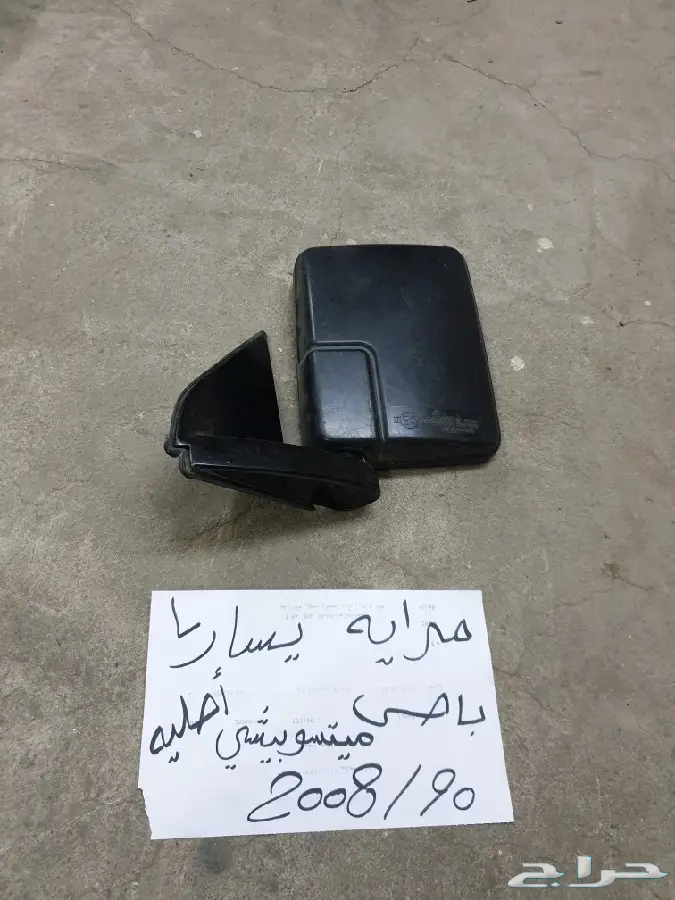 مرايه يسار
باص ميتسوبيشي أصليه
2008/90
حراج